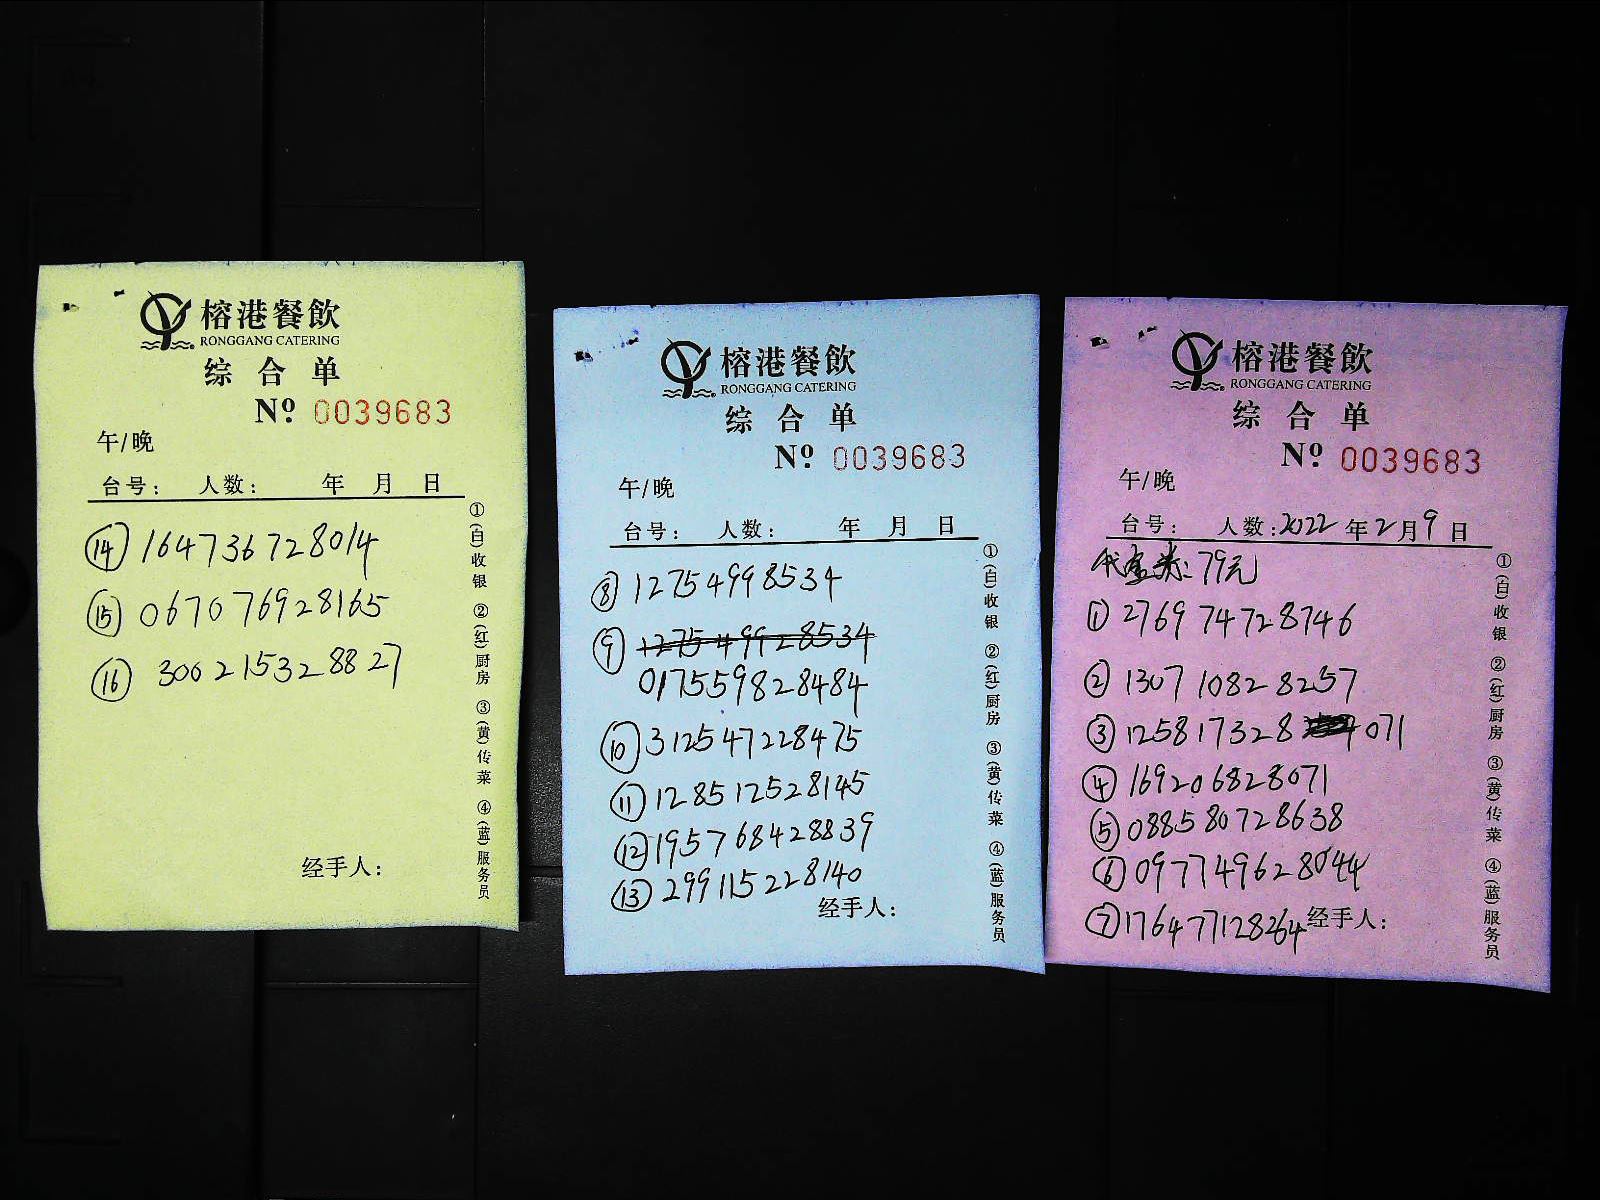 榕港餐飲
RONGGANG CATERING
综合单
Nº 0039683
午/晚
台号： 人数： 年 月 日
⑭ 164736728014
⑮ 067076928165
⑯ 300215328827
经手人：
①(白)收银 ②(红)厨房 ③(黄)传菜 ④(蓝)服务员
榕港餐飲
RONGGANG CATERING
综合单
Nº 0039683
午/晚
台号： 人数： 年 月 日
⑧ 12754998534
⑨ 127549928534
017559828484
⑩ 312547228475
⑪ 128512528145
⑫ 195768428839
⑬ 299115228140
经手人：
①(白)收银 ②(红)厨房 ③(黄)传菜 ④(蓝)服务员
榕港餐飲
RONGGANG CATERING
综合单
Nº 0039683
午/晚
台号： 人数：2022年2月9日
代金券：79元
① 276974728746
② 130710828257
③ 125817328 071
④ 169206828071
⑤ 088580728638
⑥ 097749628044
⑦ 176477128264
经手人：
①(白)收银 ②(红)厨房 ③(黄)传菜 ④(蓝)服务员